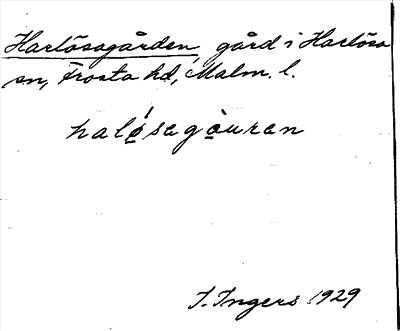 Harlösagården, gård i Harlösa
sn, Frosta hd, Malm. l.
halọ́sagọ̀uran
I. Ingers 1929